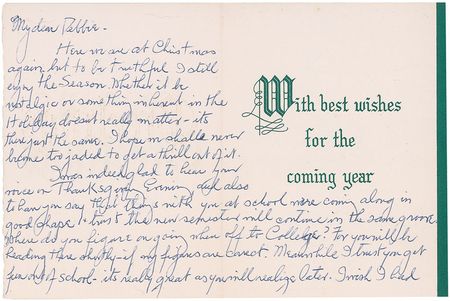 My dear Debbie -
Here we are at Christmas
again, but to be truthful I still
enjoy the Season. Whether it be
nostalgic or something inherent in the
Holiday doesn't really matter - its
there just the same. I hope I shall never
become too jaded to get a thrill out of it.
I was indeed glad to hear your
voice on Thanksgiving Evening, and also
to hear you say that things with you at school were coming along in
good shape. I trust the new semester will continue in the same groove.
Where did you figure on going when off to College? For you will be
heading there shortly - if my figures are correct. Meanwhile I trust you get
fun out of school - its really great as you will realize later. I wish I had
With best wishes
for the
coming year